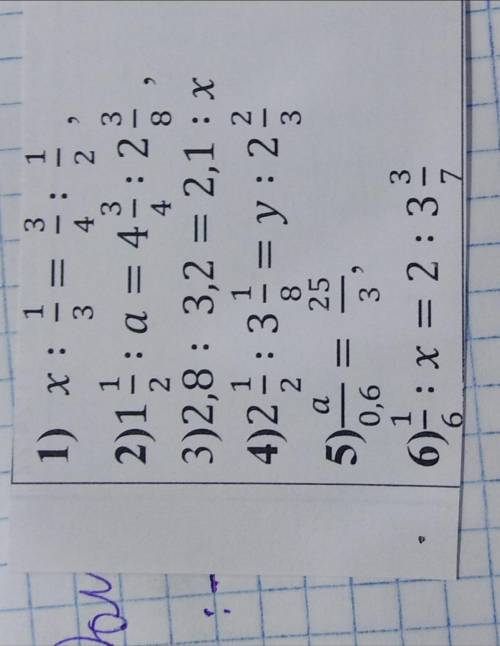 1) x : 1/3 = 3/4 : 1/2,
2) 1 1/2 : a = 4 3/4 : 2 3/8,
3) 2,8 : 3,2 = 2,1 : x
4) 2 1/2 : 3 1/8 = y : 2 2/3
5) a/0,6 = 25/3,
6) 1/6 : x = 2 : 3 3/7